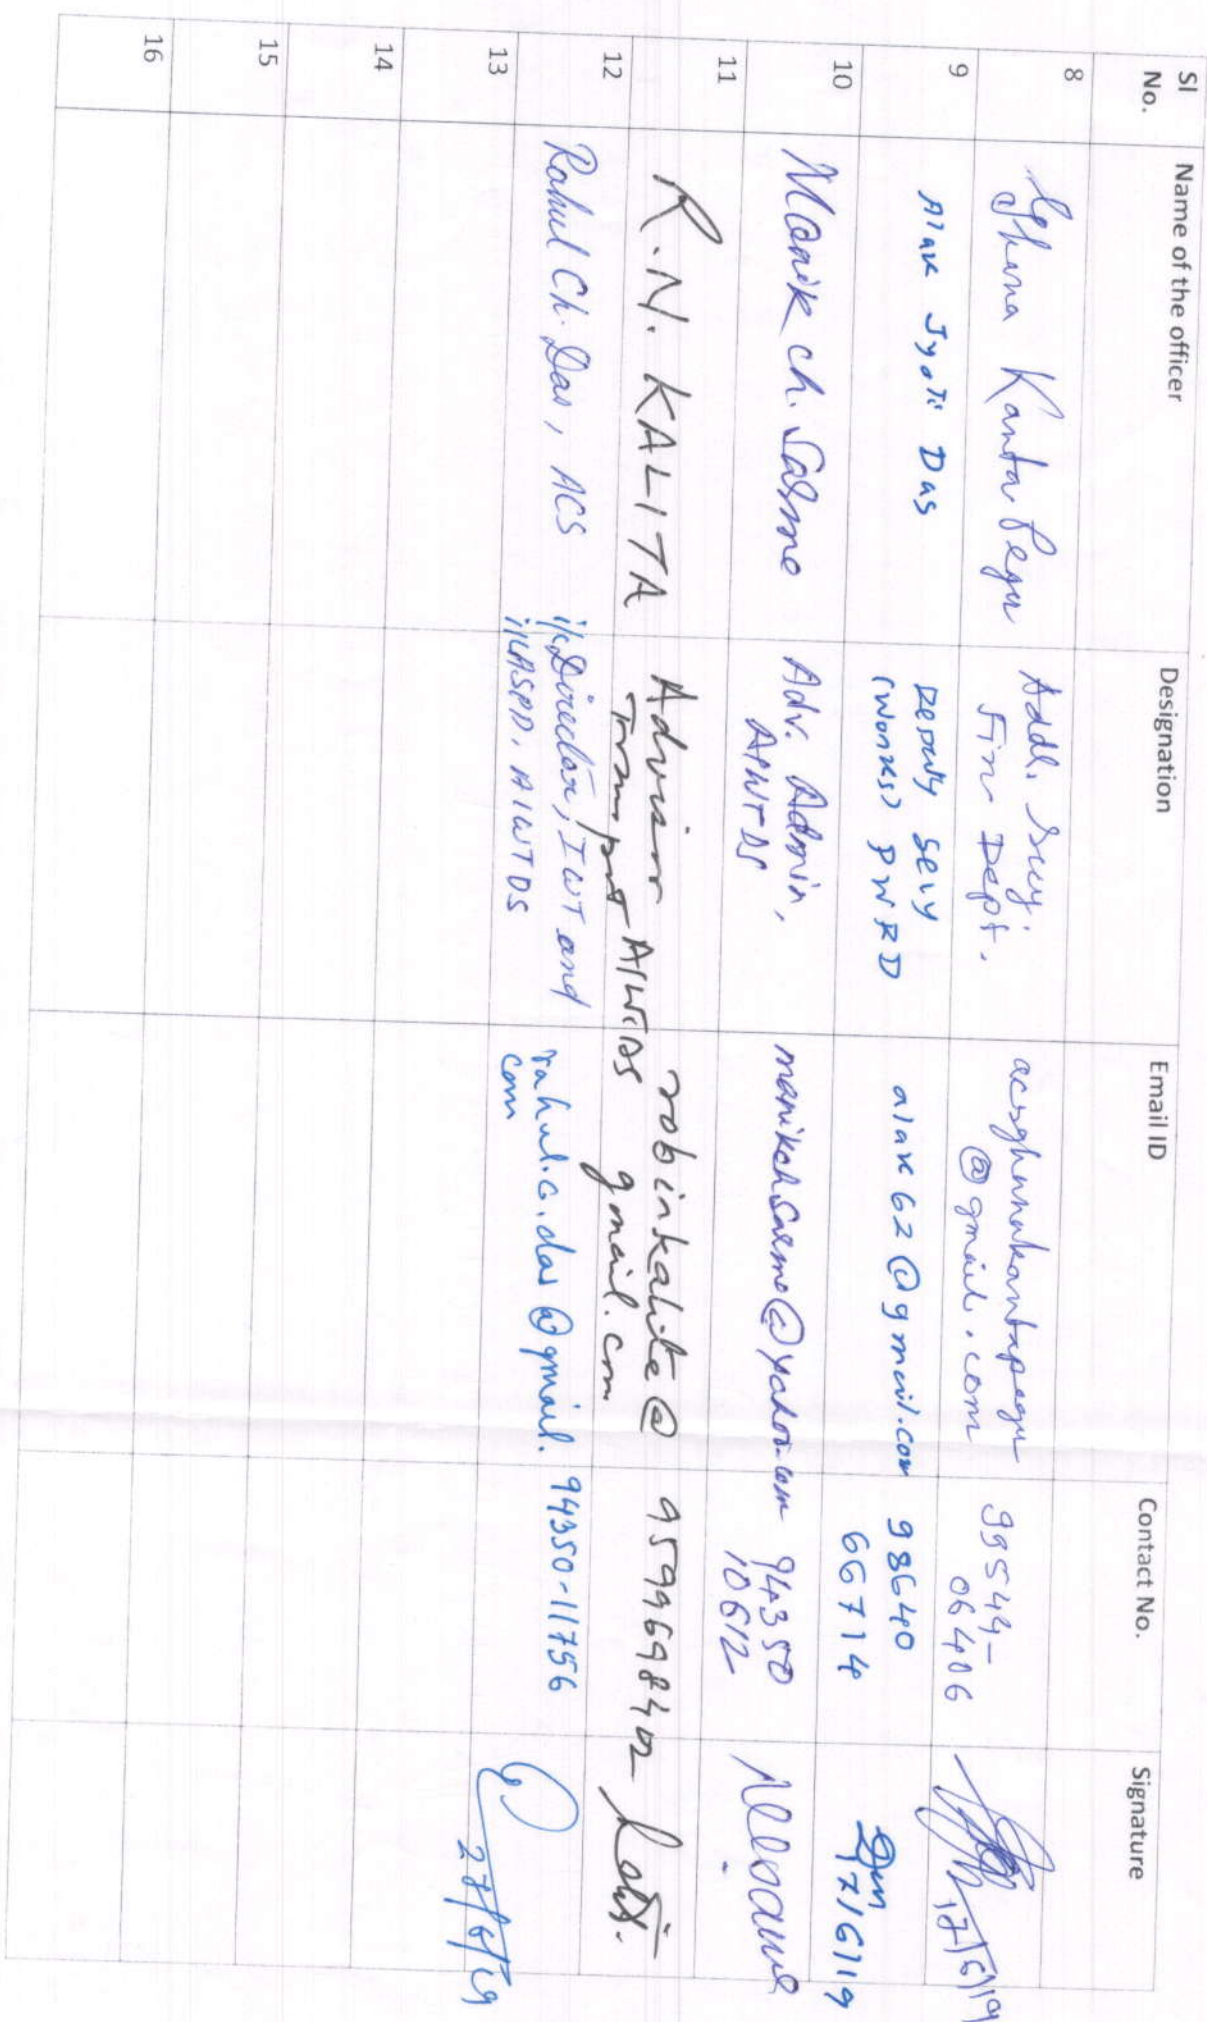 Sl No. Name of the officer Designation Email ID Contact No. Signature
8 Ghana Kanta Pegu Addl. Secy. Fin Dept. acsghanakantapegu @gmail.com 99544- 06406 17/6/19
9 Alak Jyoti Das Deputy Secy (Works) PWRD alak62@gmail.com 98640 66714 17/6/19
10 Manik ch. Sarma Adv. Admin, AIWTDS manikchsarma@yahoo.com 94350 10612
11 R.N. KALITA Advisor Transport AIWTDS robinkalita@ gmail.com 9599698402
12 Rahul Ch. Das, ACS i/c Director, IWT and i/c ASPD, AIWTDS rahul.c.das@gmail. com 94350-11756
13
14
15
16